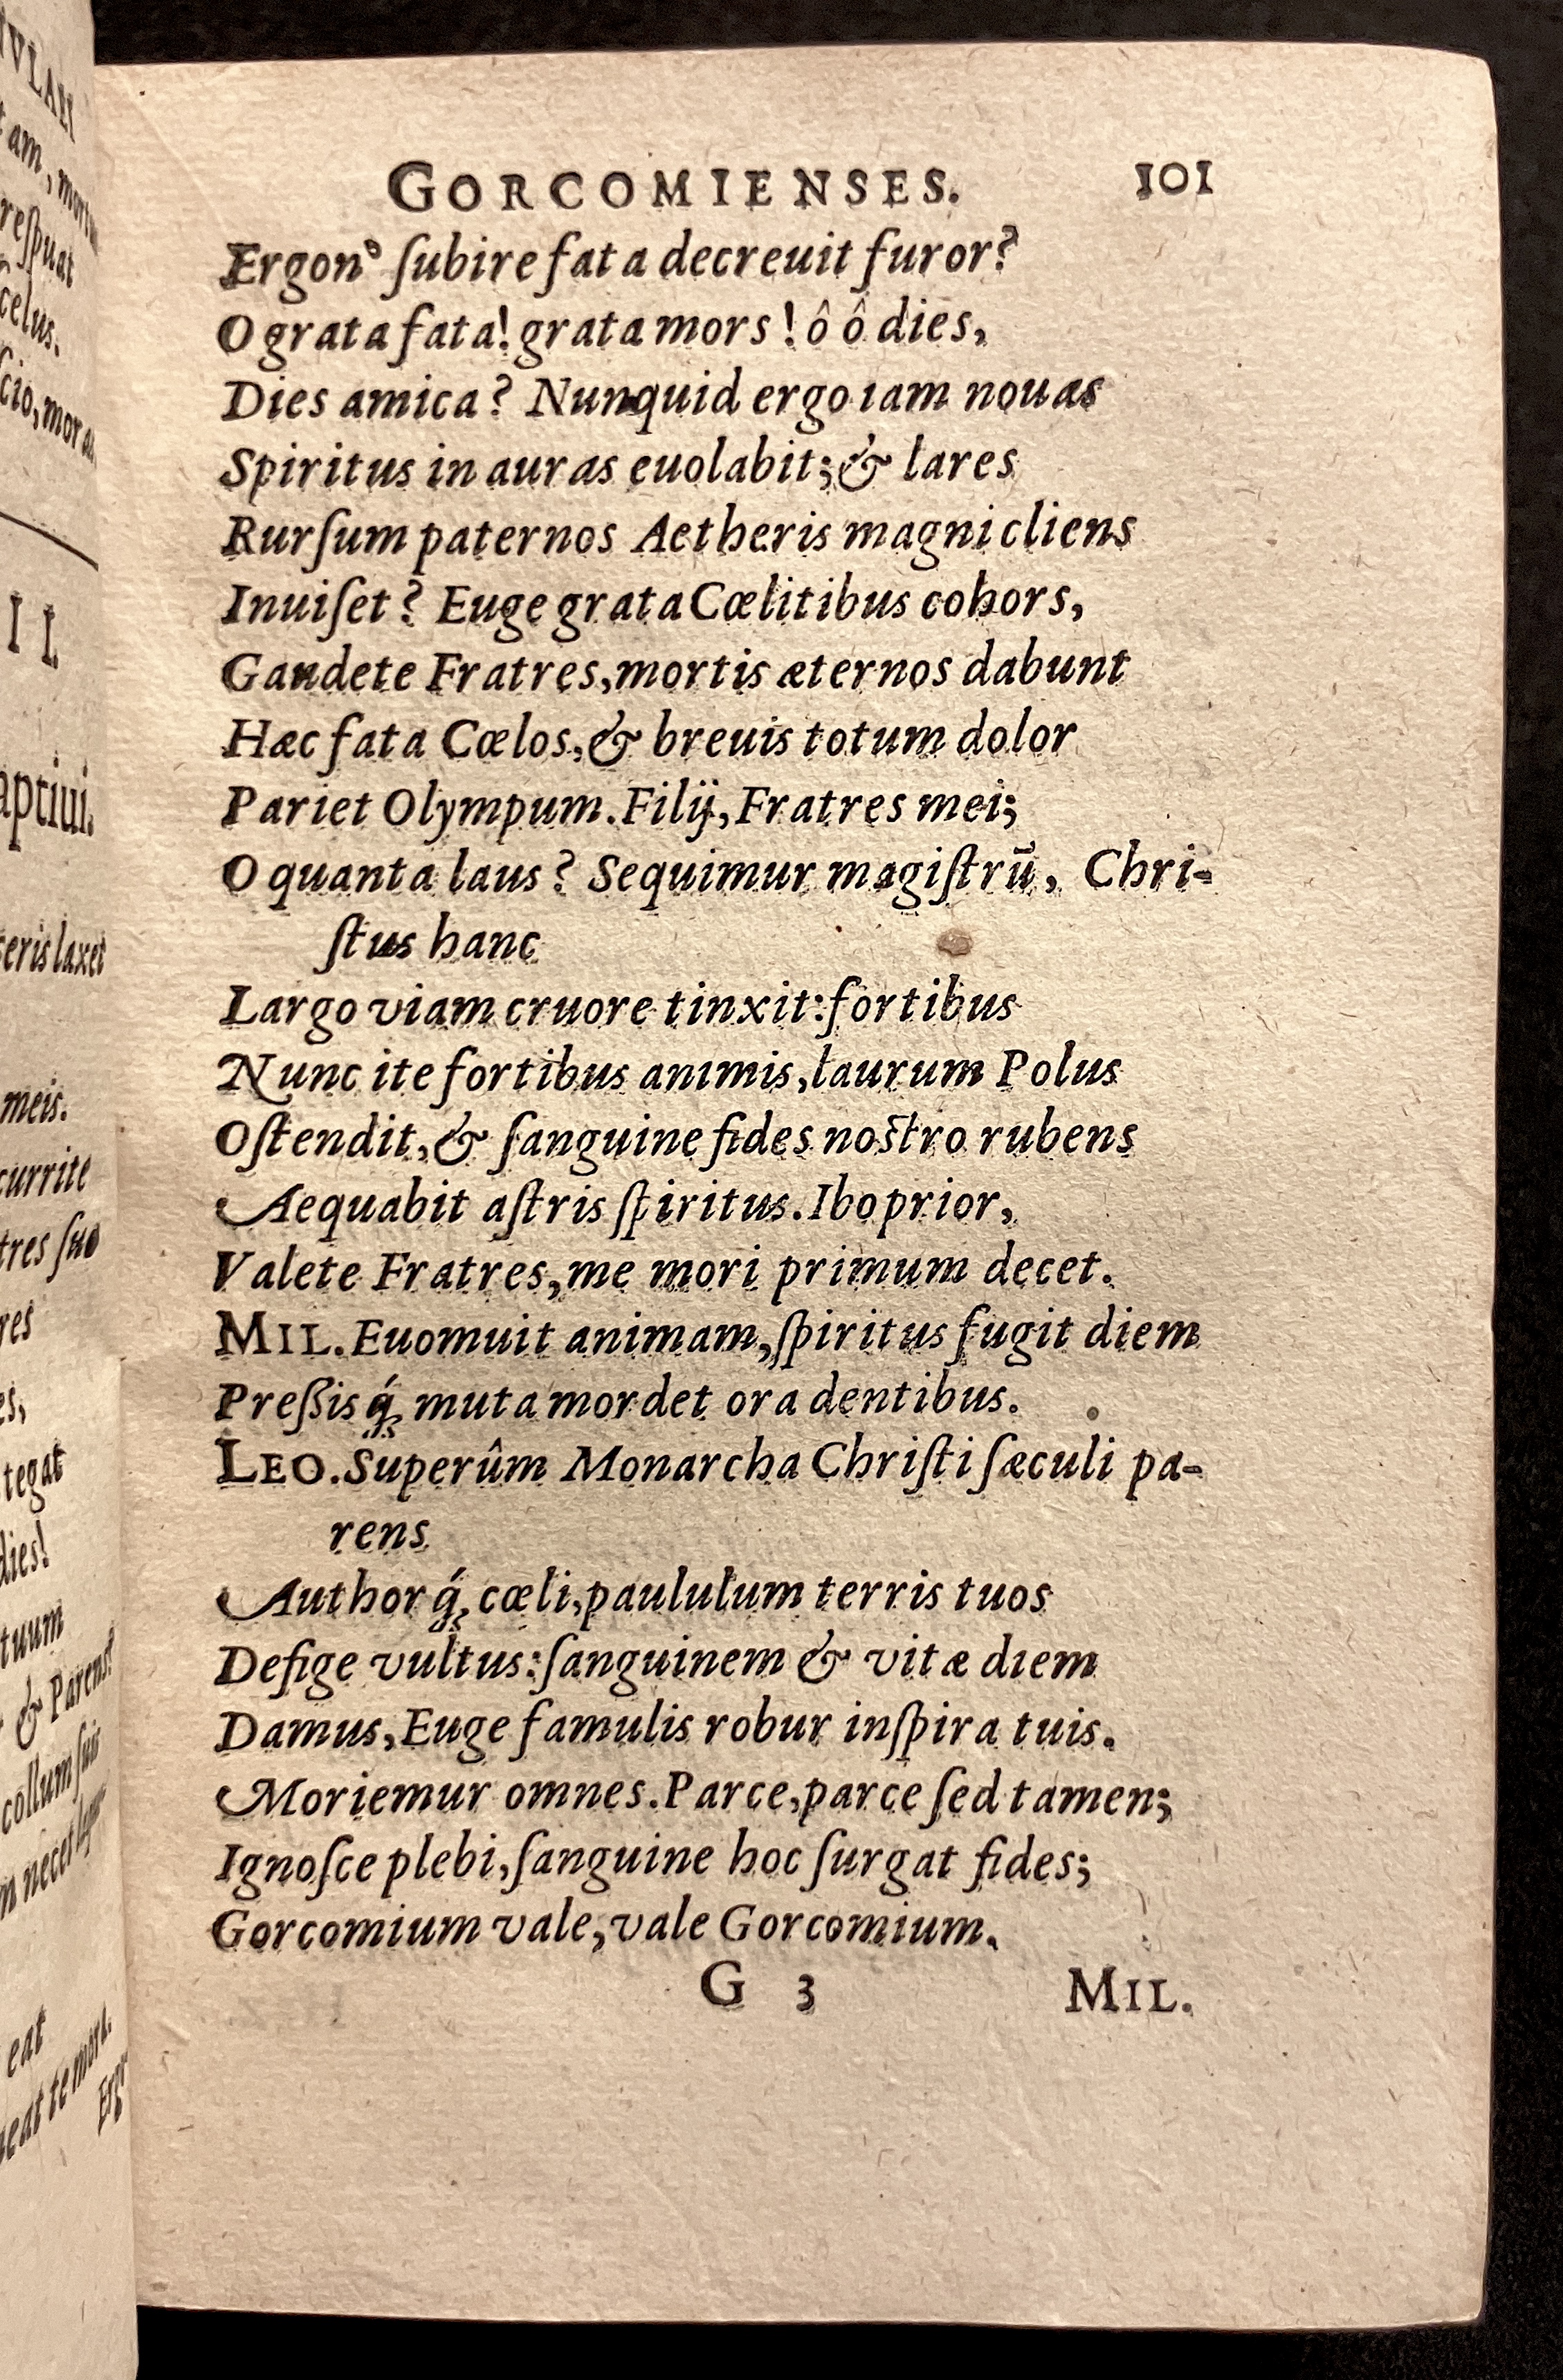 VLAEI
am, mort
reſpuat
celus.
ſcio, mor
I I.
aptiui.
eris laxet
meis.
currite
tres ſuo
res
es,
tegat
dies!
tuum
& Parens?
collum ſuis
necet
eat
eat te mora.
Ergo
GORCOMIENSES. 101
Ergon' ſubire fata decreuit furor?
O grata fata! grata mors! ô ô dies,
Dies amica? Nunquid ergo iam nouas
Spiritus in auras euolabit; & lares
Rurſum paternos Aetheris magni cliens
Inuiſet? Euge grata Cœlitibus cohors,
Gaudete Fratres, mortis æternos dabunt
Hæc fata Cœlos, & breuis totum dolor
Pariet Olympum. Filij, Fratres mei;
O quanta laus? Sequimur magiſtrū, Chri-
ſtus hanc
Largo viam cruore tinxit: fortibus
Nunc ite fortibus animis, laurum Polus
Oſtendit, & ſanguine fides noſtro rubens
Aequabit aſtris ſpiritus. Ibo prior,
Valete Fratres, me mori primum decet.
MIL. Euomuit animam, ſpiritus fugit diem
Preſſis q́; muta mordet ora dentibus.
LEO. Superûm Monarcha Chriſti ſæculi pa-
rens
Author q́; cœli, paululum terris tuos
Defige vultus: ſanguinem & vitæ diem
Damus, Euge famulis robur inſpira tuis.
Moriemur omnes. Parce, parce ſed tamen;
Ignoſce plebi, ſanguine hoc ſurgat fides;
Gorcomium vale, vale Gorcomium.
G 3 MIL.